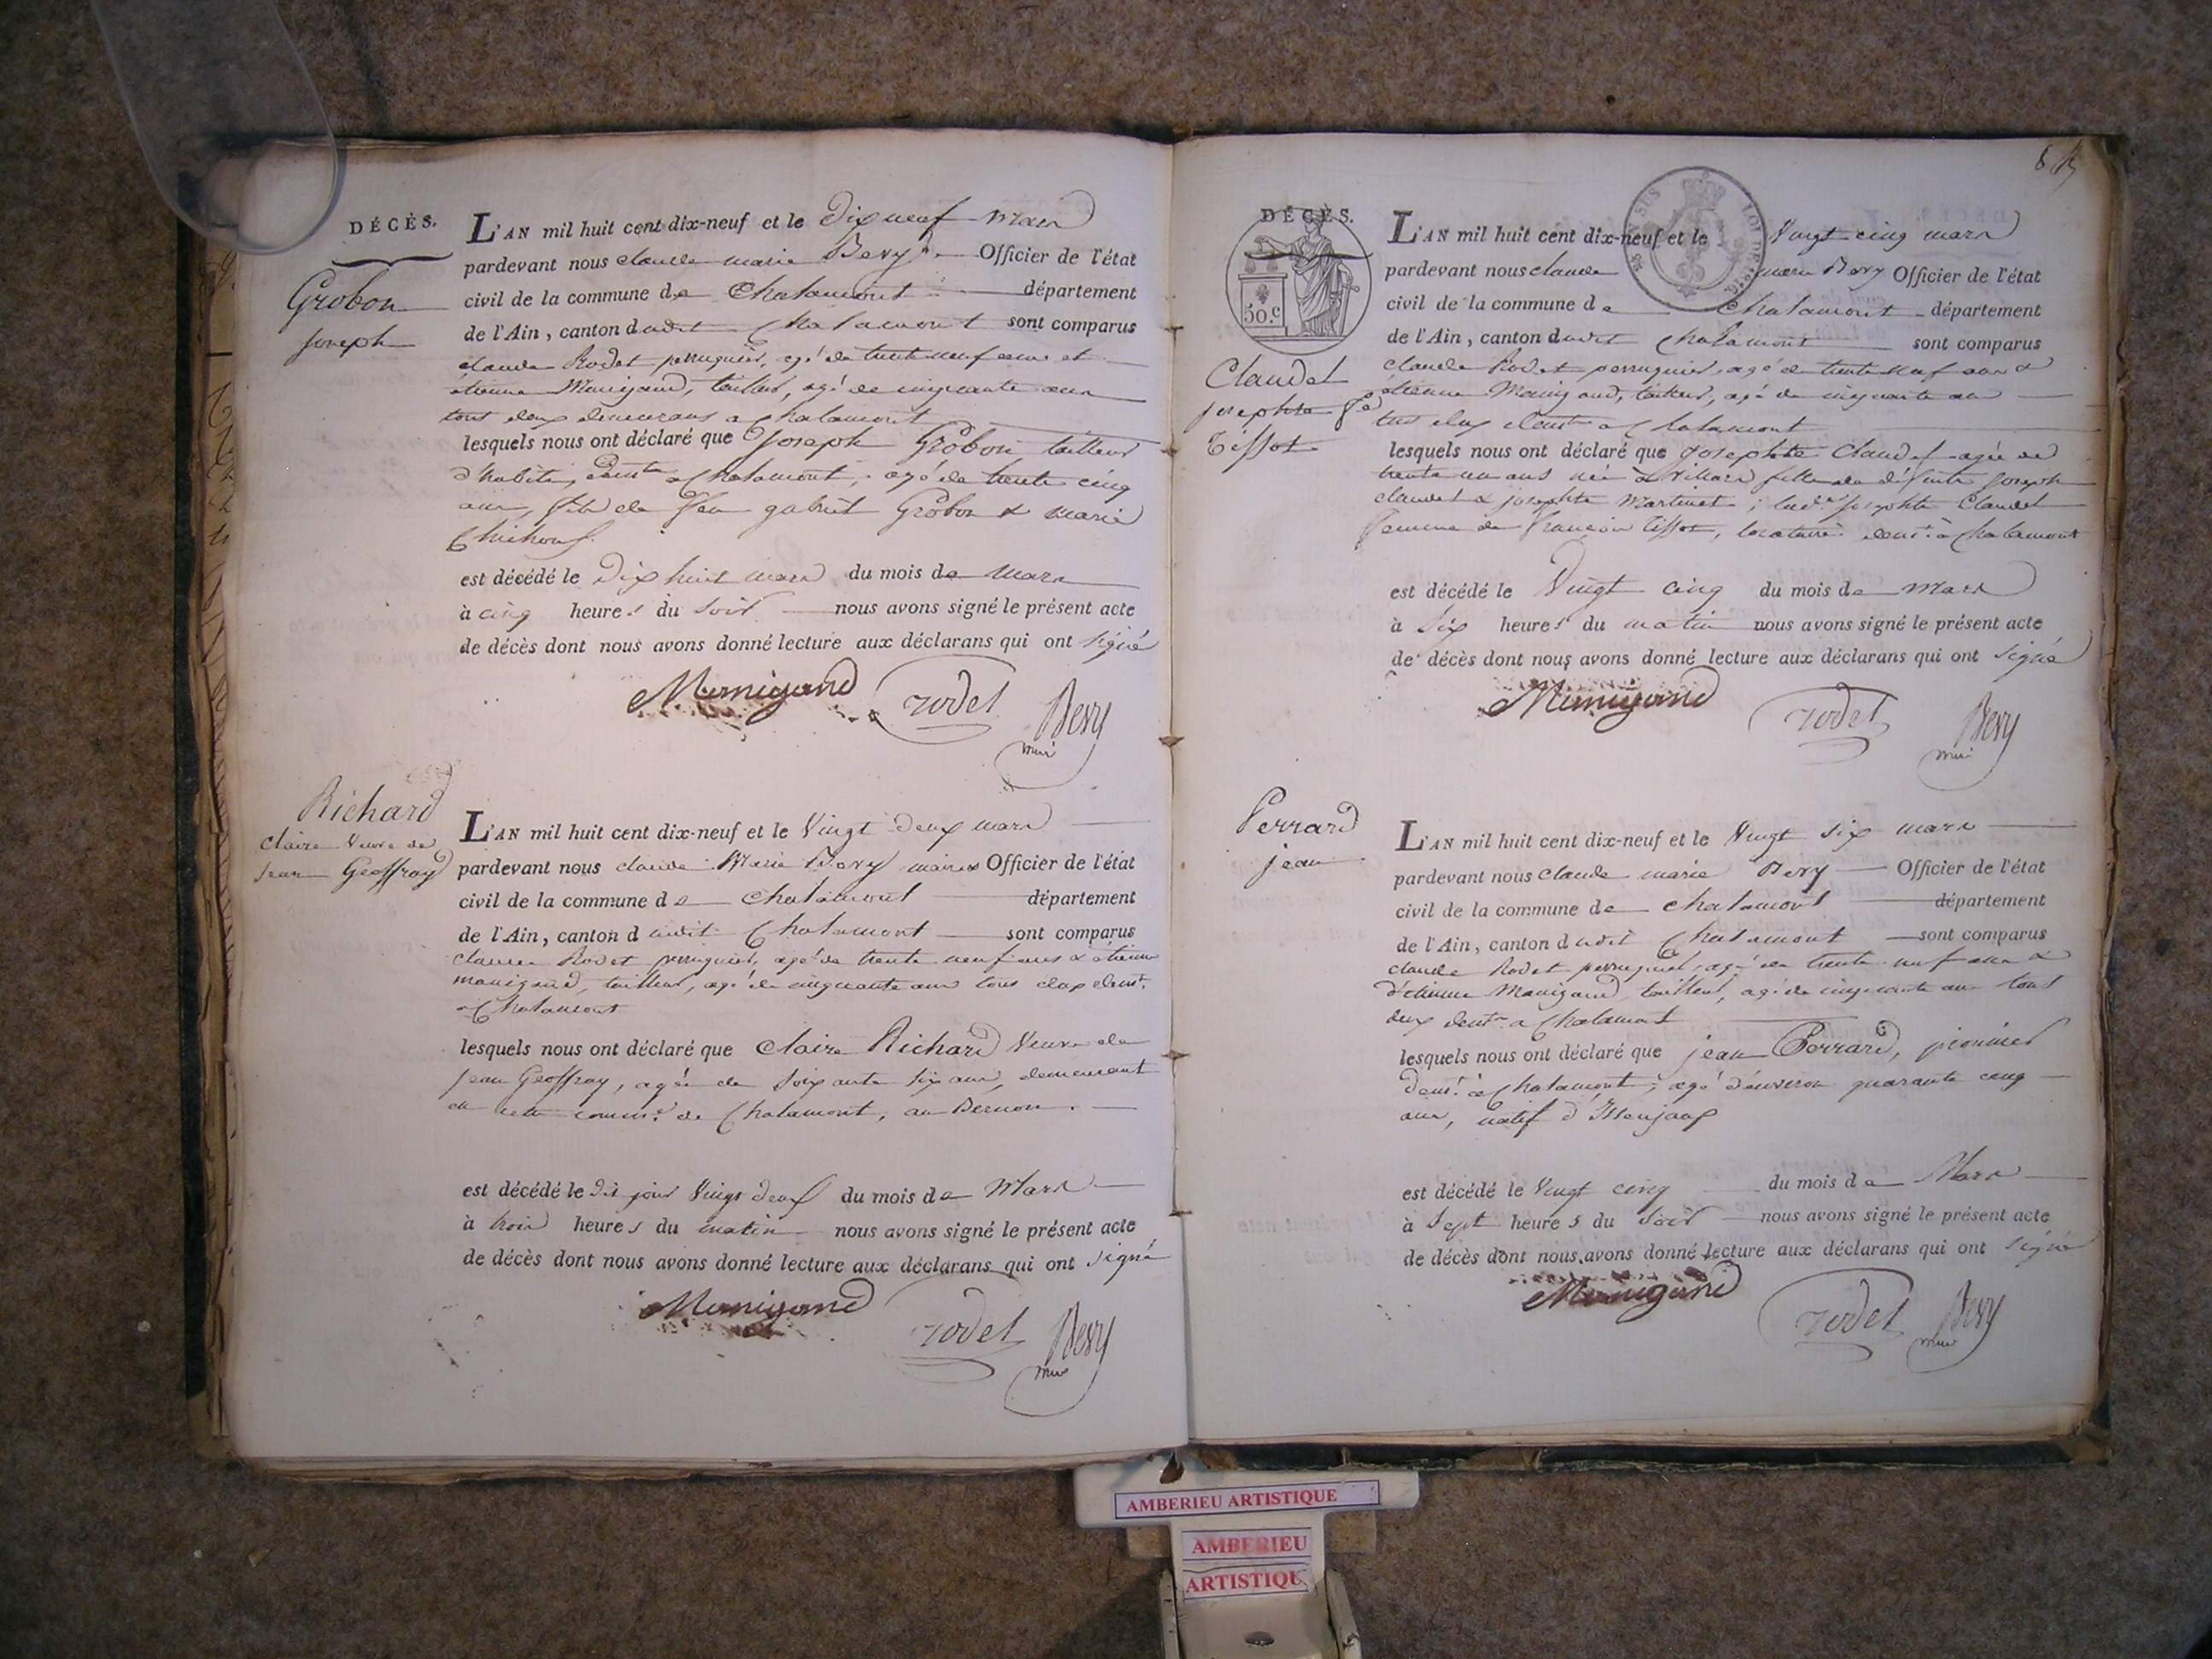 DÉCÈS.
Grobon
Joseph
L'AN mil huit cent dix-neuf et le Dix neuf mars
pardevant nous claude marie Bevy Officier de l'état
civil de la commune de Chalamont département
de l'Ain, canton dudit Chalamont sont comparus
claude Rodet perruquier, agé de trente neuf ans et
etienne Manigand, tailleur, agé de cinquante ans
tous deux demeurans a Chalamont
lesquels nous ont déclaré que Joseph Grobon tailleur
d'habits, demt a Chalamont, agé de trente cinq
ans, fils de feu gabriel Grobon & marie
est décédé le Dix huit mars du mois de mars
à cinq heures du soir nous avons signé le présent acte
de décès dont nous avons donné lecture aux déclarans qui ont signé
Manigand rodet Bevy
Richard
Claire Veuve de
Jean Geoffray
L'AN mil huit cent dix-neuf et le Vingt Deux mars
pardevant nous claude Marie Bevy maire Officier de l'état
civil de la commune de Chalamont département
de l'Ain, canton dudit Chalamont sont comparus
claude Rodet perruquier, agé de trente neuf ans & étienne
manigand, tailleur, agé de cinquante ans tous deux demt.
a Chalamont
lesquels nous ont déclaré que Claire Richard Veuve de
Jean Geoffray, agée de soixante six ans, demeurant
en cette comme. de Chalamont, au Bernon.
est décédé le dit jour Vingt deux du mois de Mars
à trois heures du matin nous avons signé le présent acte
de décès dont nous avons donné lecture aux déclarans qui ont signé
Manigand rodet Bevy
8
DÉCÈS.
50.c
Claudel
Josephte fe
Tissot
L'AN mil huit cent dix-neuf et le Vingt cinq mars
pardevant nous claude marie Bevy Officier de l'état
civil de la commune de Chalamont département
de l'Ain, canton dudit Chalamont sont comparus
claude Rodet perruquier, agé de trente neuf ans &
etienne Manigand, tailleur, agé de cinquante ans
tous deux demt a Chalamont
lesquels nous ont déclaré que Josephte Claudel agée de
trente un ans née à Villars fille de défunts Joseph
claudel & josephte Martinet; lade josephte Claudel
femme de françois tissot, locataire demt. à Chalamont
est décédé le Vingt cinq du mois de mars
à six heures du matin nous avons signé le présent acte
de décès dont nous avons donné lecture aux déclarans qui ont signé
Manigand rodet Bevy
Perrard
jean
L'AN mil huit cent dix-neuf et le Vingt six mars
pardevant nous claude marie Bevy Officier de l'état
civil de la commune de chalamont département
de l'Ain, canton dudit Chalamont sont comparus
claude Rodet perruquier, agé de trente neuf ans &
d'etienne Manigand tailleur, agé de cinquante ans tous
deux demt a Chalamont
lesquels nous ont déclaré que jean Perrard, pionnier
demt. à Chalamont, agé d'environ quarante cinq
ans, natif d'Issenjaux
est décédé le Vingt cinq du mois de Mars
à sept heures du soir nous avons signé le présent acte
de décès dont nous avons donné lecture aux déclarans qui ont signé
Manigand rodet Bevy
AMBERIEU ARTISTIQUE
AMBERIEU
ARTISTIQUE